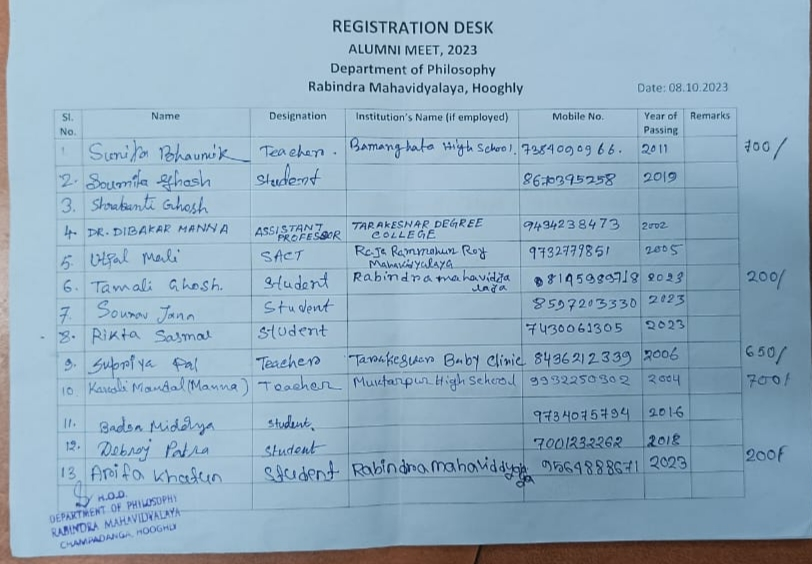 REGISTRATION DESK
ALUMNI MEET, 2023
Department of Philosophy
Rabindra Mahavidyalaya, Hooghly
Date: 08.10.2023
Sl. No. Name Designation Institution's Name (if employed) Mobile No. Year of Passing Remarks
1. Sunita Bhaumik Teacher. Bamanghata High School. 7384090966. 2011 700/
2. Soumita Ghosh Student 8670395258 2019
3. Shrabanti Ghosh
4. DR. DIBAKAR MANNA ASSISTANT PROFESSOR TARAKESWAR DEGREE COLLEGE 9434238473 2002
5. Utpal Meli SACT Raja Rammohun Roy Mahavidyalaya 9732779851 2005
6. Tamali Ghosh. Student Rabindra mahavidyalaya 8145989718 2023 200/
7. Sourav Jana Student 8597203330 2023
8. Rikta Sasmal Student 7430061305 2023
9. Supriya Pal Teacher Tarakeswar Baby Clinic 8436212339 2006 650/
10. Mandal (Manna) Teacher Muktarpur High School 9932250302 2004 700/
11. Badsa Middya Student. 9734075794 2016
12. Debraj Patra Student 7001232262 2018
13. Arifa Khatun Student Rabindra mahaviddyalaya 9564888671 2023 200/
H.O.D.
DEPARTMENT OF PHILOSOPHY
RABINDRA MAHAVIDYALAYA
CHAMPADANGA, HOOGHLY